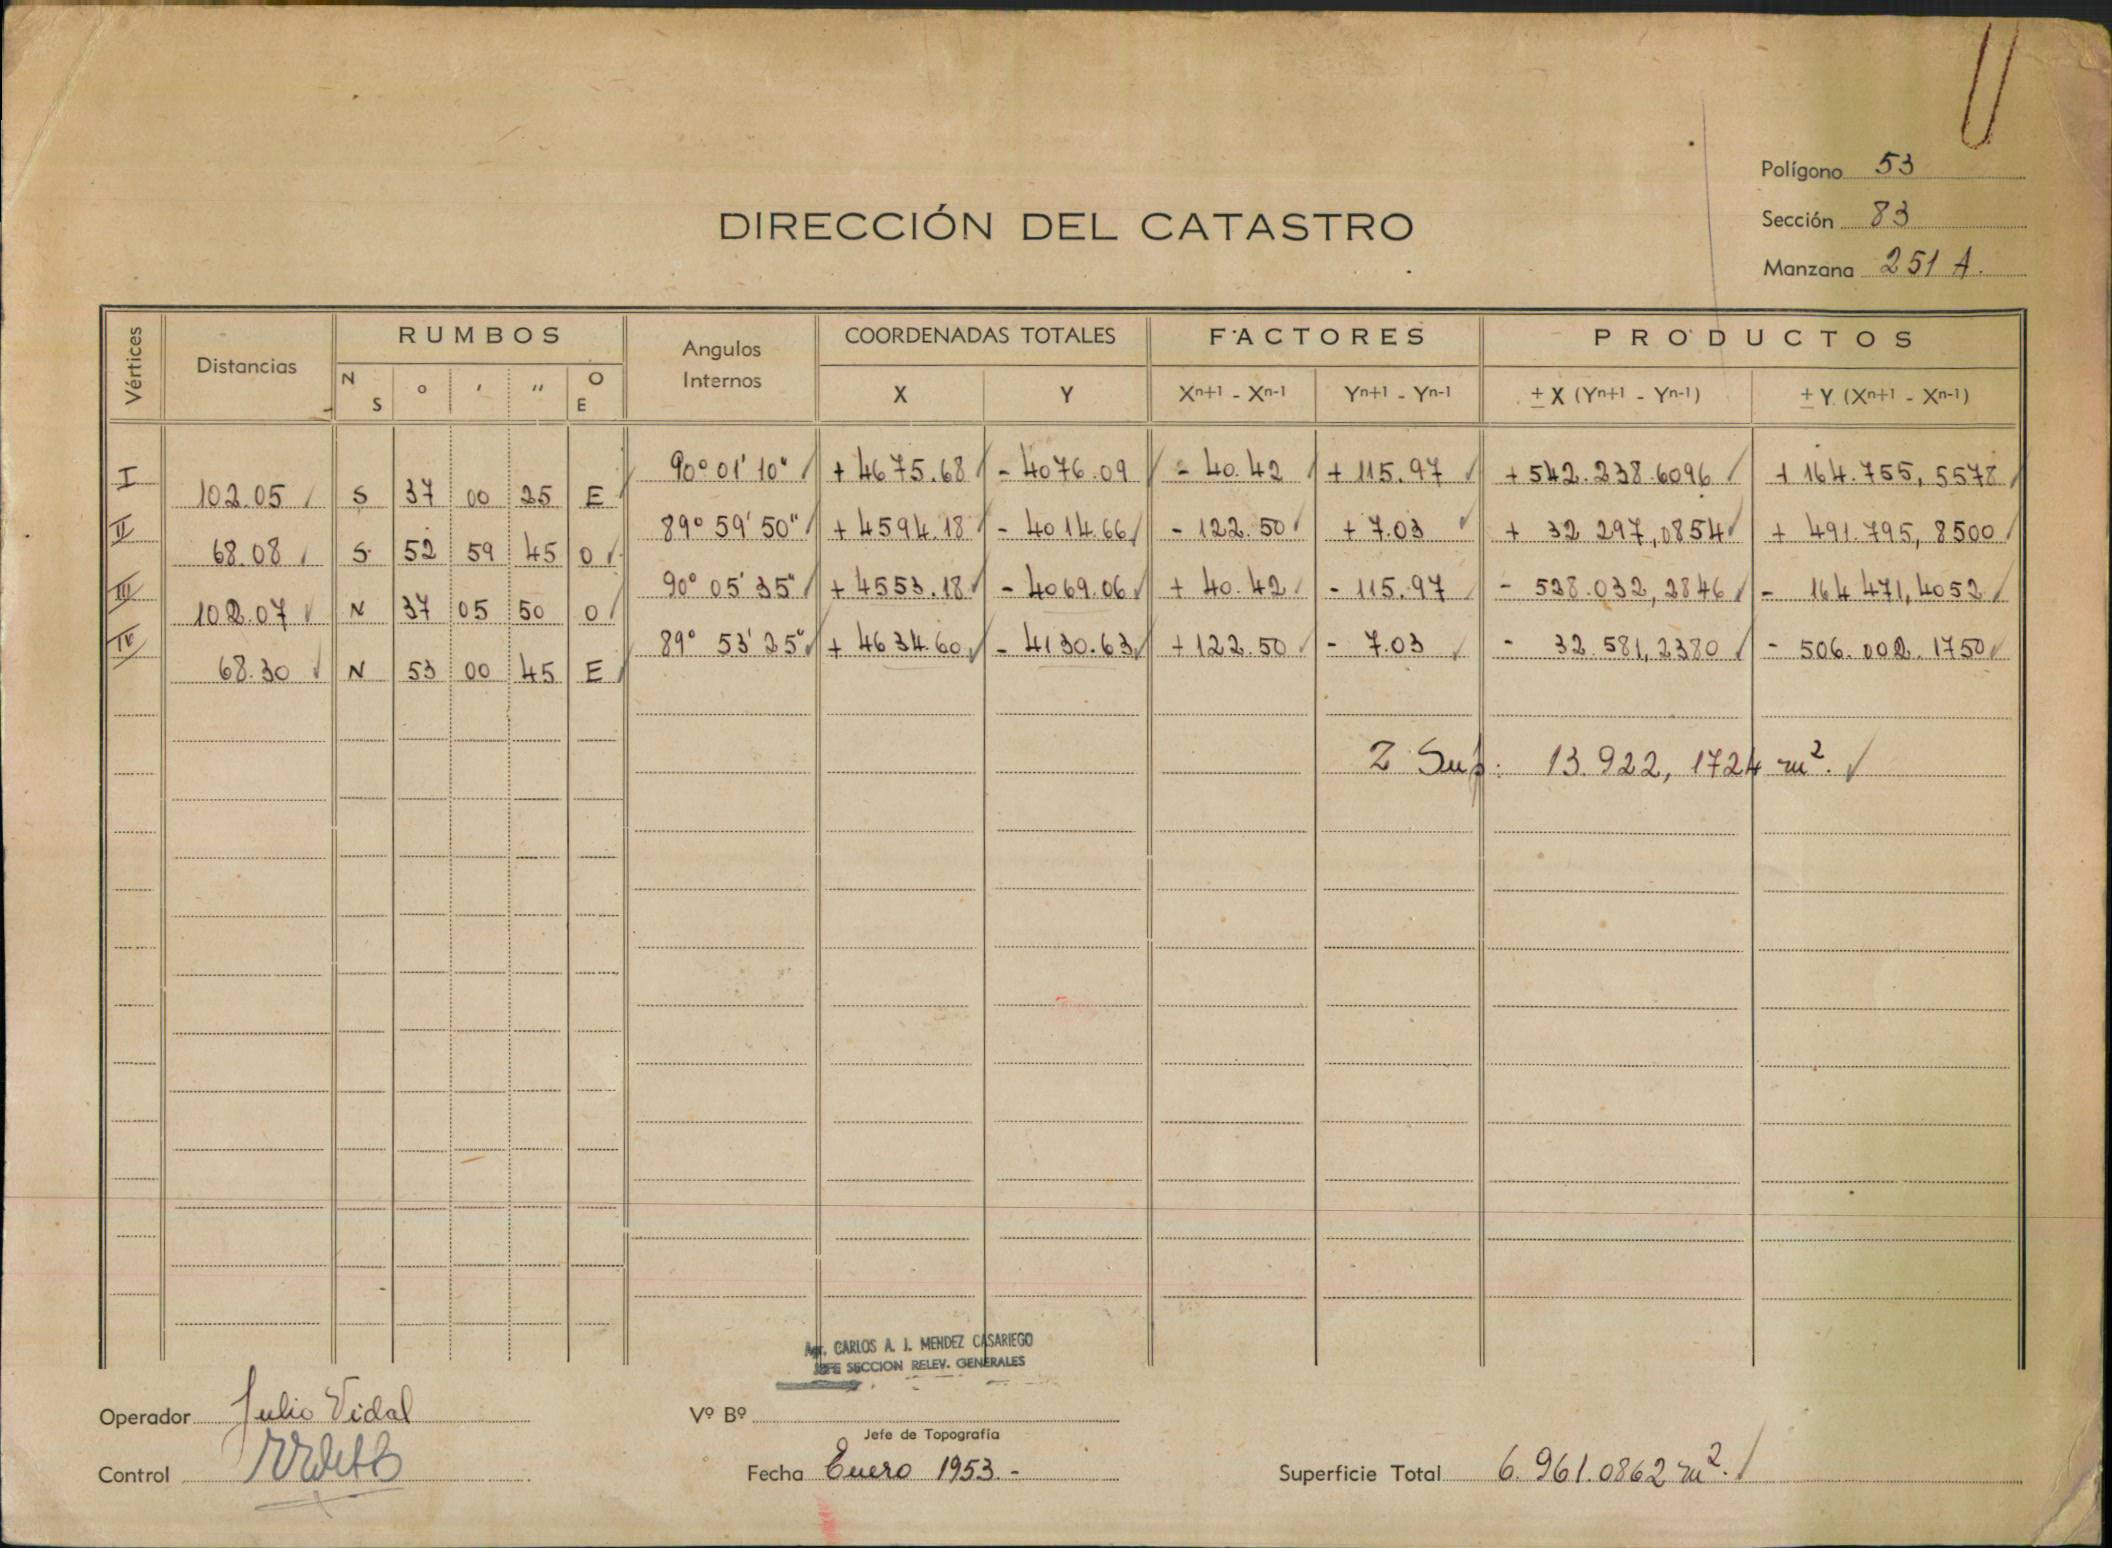 Polígono 53
Sección 83
Manzana 251 A.
DIRECCIÓN DEL CATASTRO
Vértices Distancias RUMBOS Angulos Internos COORDENADAS TOTALES FACTORES PRODUCTOS
N S ° ' " O E X Y Xn+1 - Xn-1 Yn+1 - Yn-1 ± X (Yn+1 - Yn-1) ± Y (Xn+1 - Xn-1)
I 90° 01' 10" + 4675.68 - 4076.09 - 40.42 + 115.97 + 542.238.6096 + 164.755,5578
102.05 S 37 00 25 E
II 89° 59' 50" + 4594.18 - 4014.66 - 122.50 + 7.03 + 32 297,0854 + 491.795,8500
68.08 S 52 59 45 O
III 90° 05' 35" + 4553.18 - 4069.06 + 40.42 - 115.97 - 528.032,2846 - 164 471,4052
102.07 N 37 05 50 O
IV 89° 53' 25" + 4634.60 - 4130.63 + 122.50 - 7.03 - 32.581,2380 - 506.002.1750
68.30 N 53 00 45 E
2 Sup. 13.922,1724 m².
Agr. CARLOS A. J. MENDEZ CASARIEGO
JEFE SECCION RELEV. GENERALES
Operador Julio Vidal
Vº Bº
Jefe de Topografía
Control
Fecha Enero 1953.-
Superficie Total 6.961.0862 m².